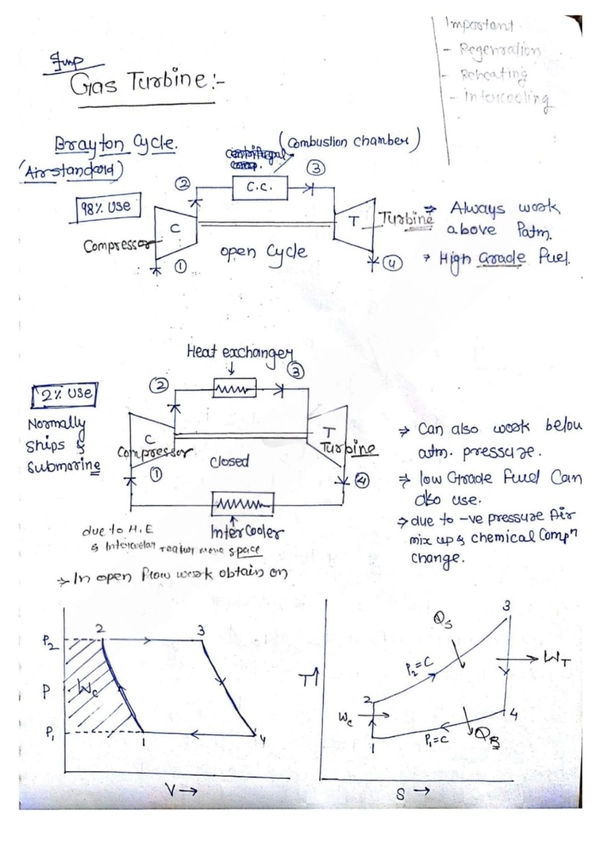 Important
- Regenration
- Reheating
- intercooling
Imp
Gas Turbine:-
Brayton Cycle.
(Air standard)
(Combustion chamber)
centrifugal
comp.
C.C.
98% Use
Compressor
C
T
Turbine
open Cycle
1
2
3
4
⇒ Always work
above Patm.
→ High Grade Fuel.
Heat exchanger
2% Use
Normally
Ships &
Submarine
C
Compressor
T
Turbine
closed
1
2
3
4
InterCooler
due to H.E
& Intercooler requier more space
⇒ Can also work below
atm. pressure.
⇒ low Grade Fuel Can
also use.
⇒ due to -ve pressure Air
mix up & chemical Compⁿ
change.
→ In open Flow work obtain on
P₂
P
P₁
2
3
1
4
Wc
V→
T↑
3
Qs
P₂=C
WT
2
Wc
1
P₁=C
QR
4
S →